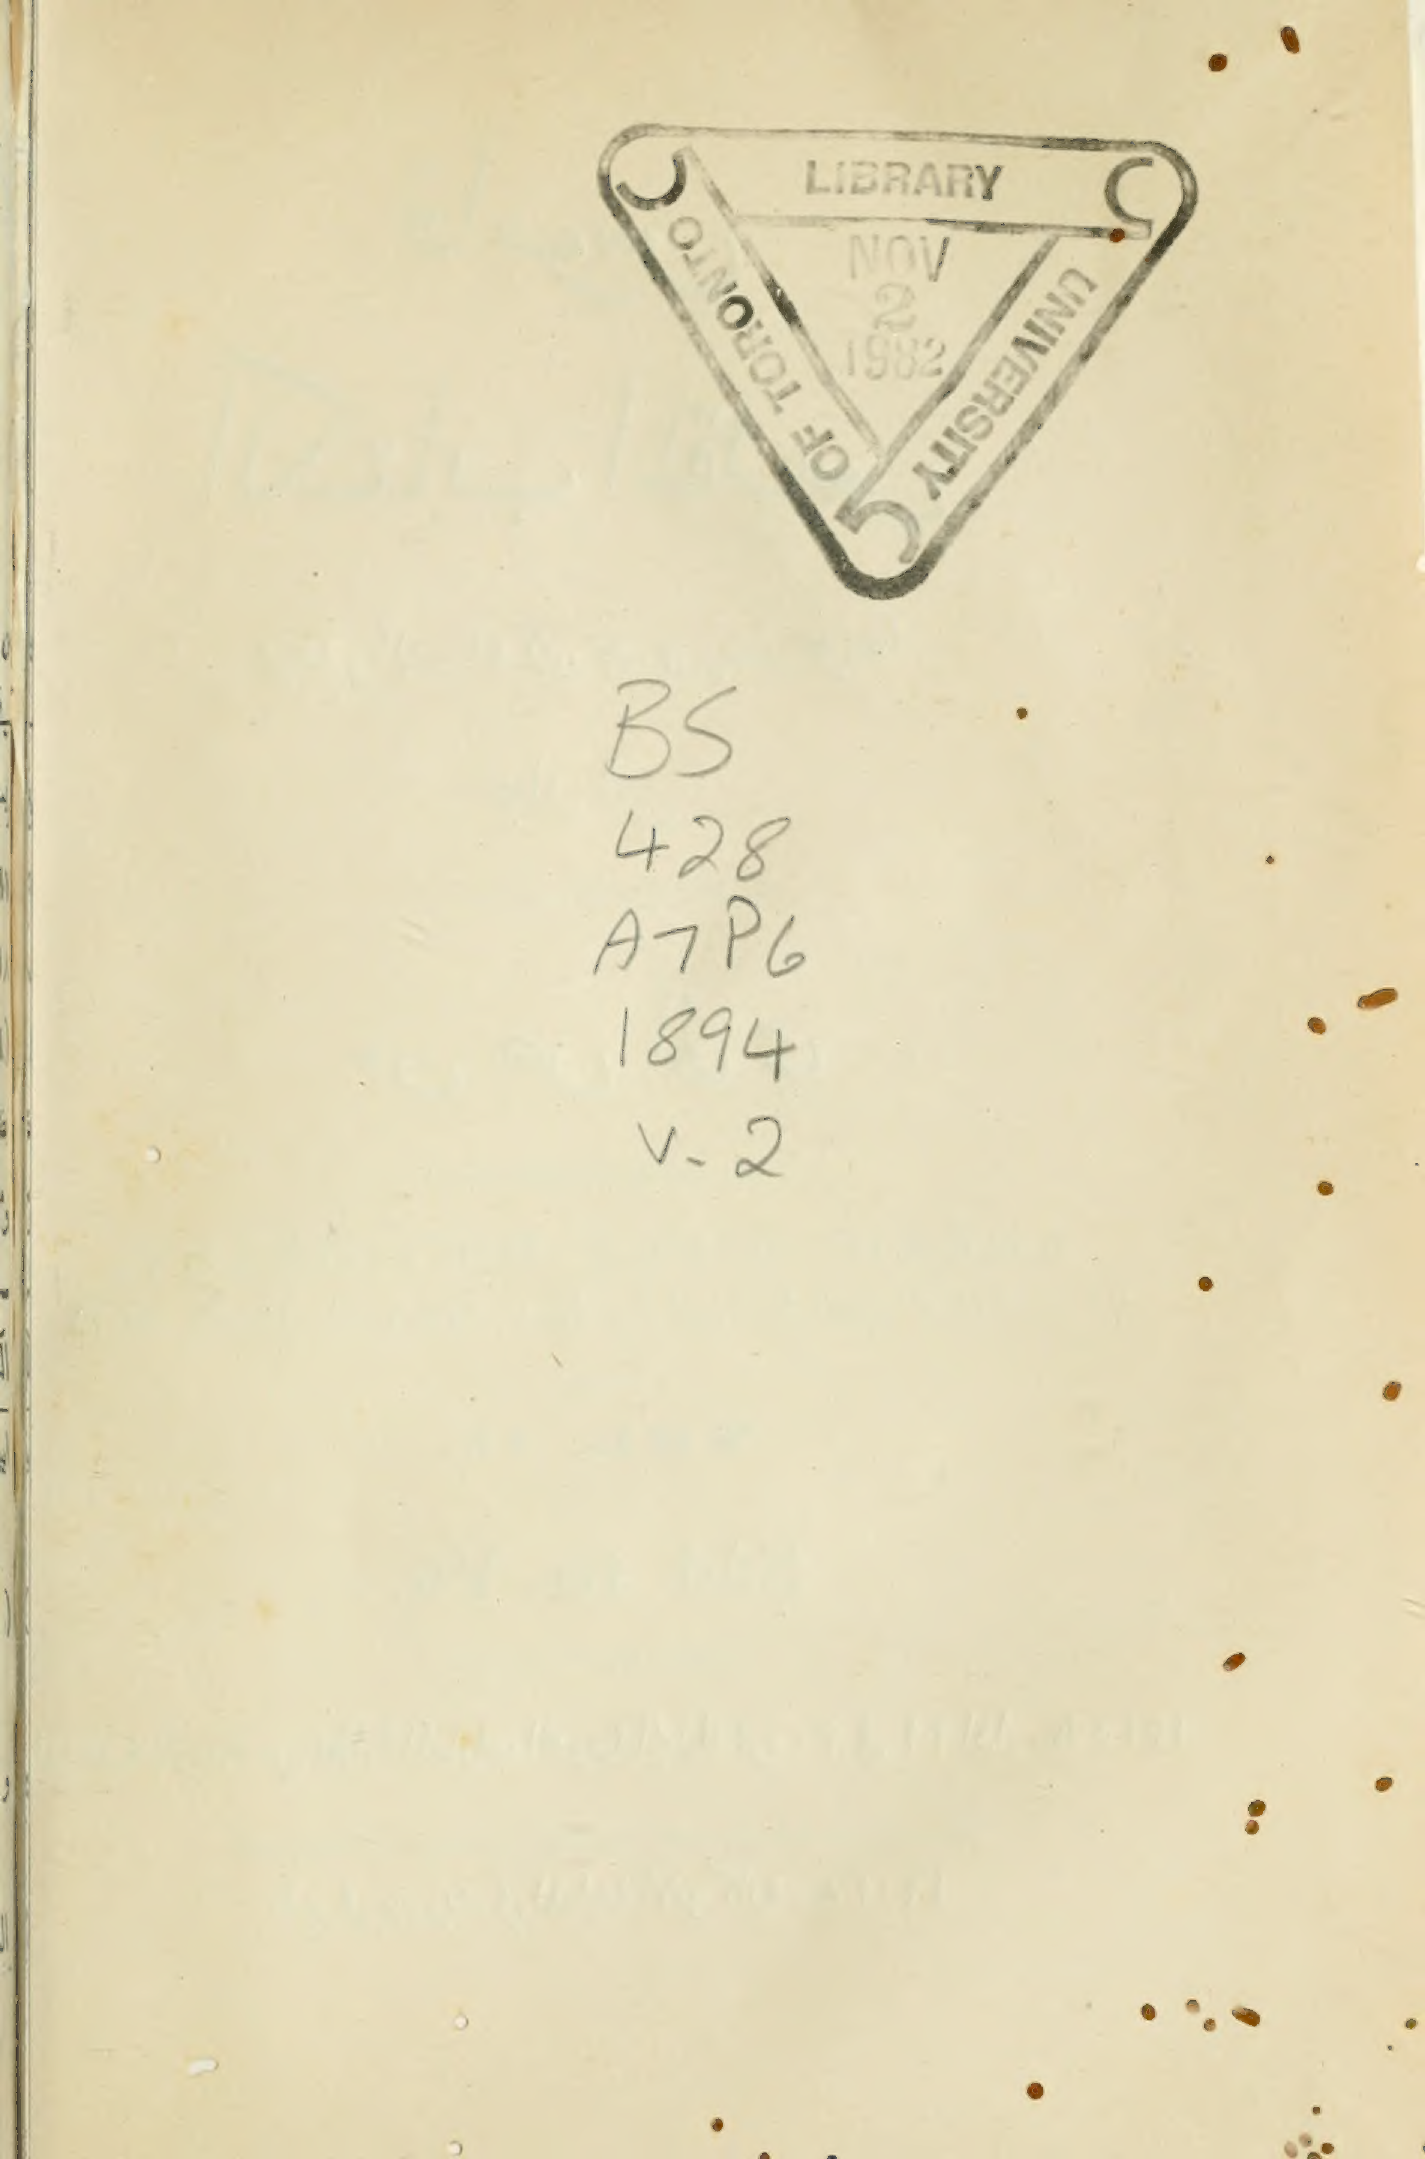 LIBRARY
UNIVERSITY
OF TORONTO
NOV
2
1982
BS
428
A7P6
1894
v. 2